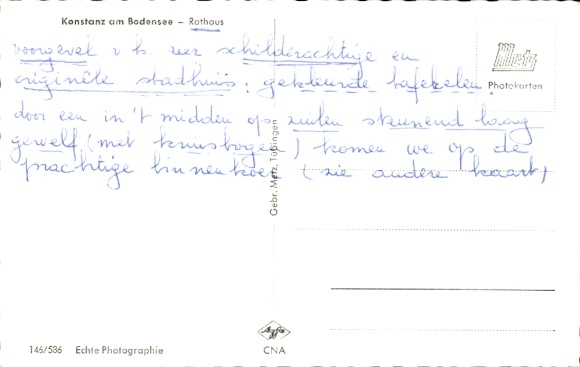 Konstanz am Bodensee – Rathaus
voorgevel v.h. zeer schilderachtige en
originele stadhuis: gekleurde tafrelen.
door een in 't midden op zuilen steunend laag
gewelf (met kruisbogen) komen we op de
prachtige binnenkoer (zie andere kaart)
Metz
Photokarten
Gebr. Metz, Tübingen
Agfa
146/586 Echte Photographie
CNA